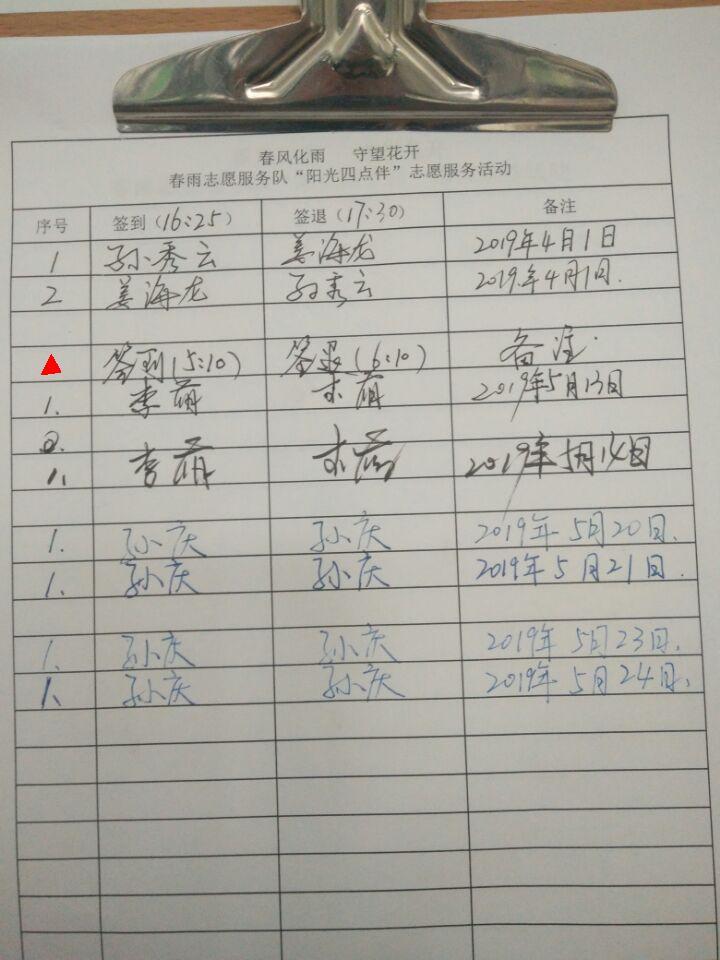 春风化雨 守望花开
春雨志愿服务队“阳光四点伴”志愿服务活动
序号 签到(16:25) 签退(17:30) 备注
1 孙秀云 姜海龙 2019年4月1日
2 姜海龙 孙秀云 2019年4月1日.
签到(5:10) 签退(6:10) 备注.
1. 李萌 李萌 2019年5月13日
2.
1. 李萌 李萌 2019年5月14日
1. 孙庆 孙庆 2019年5月20日.
1. 孙庆 孙庆 2019年5月21日.
1. 孙庆 孙庆 2019年5月23日.
1. 孙庆 孙庆 2019年5月24日.